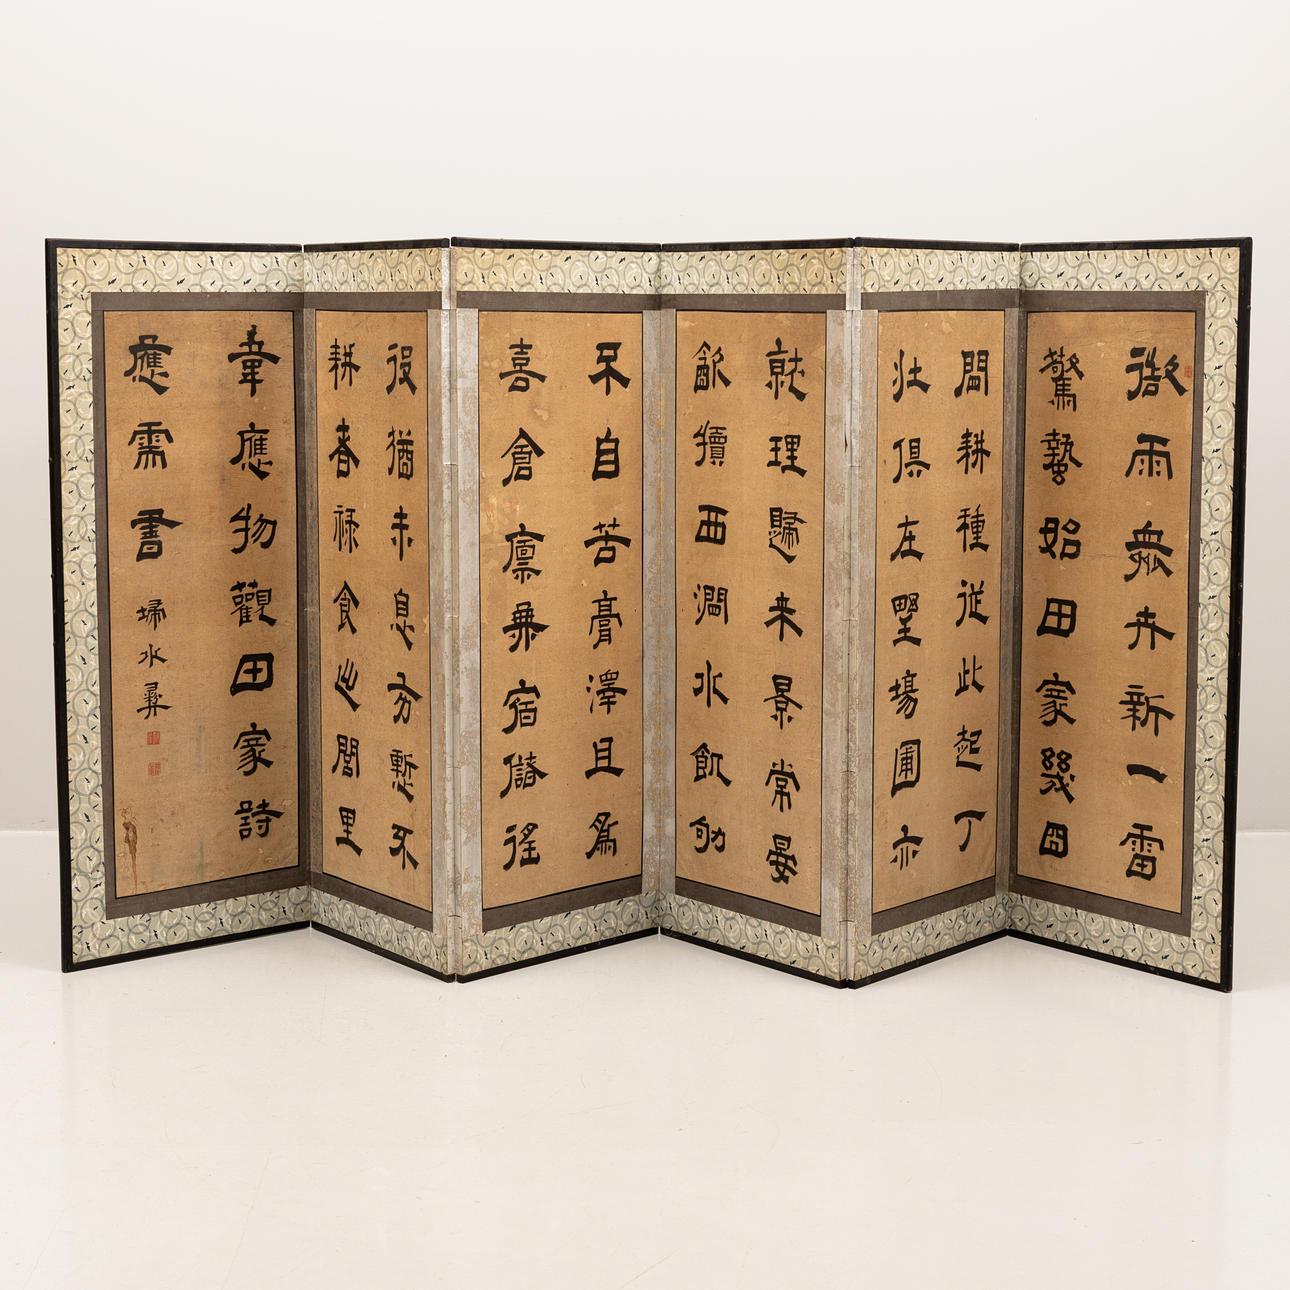 微雨衆卉新一雷
驚蟄始田家幾日
閒耕種従此起丁
壯俱在墅場圃亦
就理歸来景常晏
飲犢西澗水飢劬
不自苦膏澤且爲
喜倉廩無宿儲徭
役猶未息方慙不
耕者禄食出閭里
韋應物觀田家詩
應需書 埽水彝